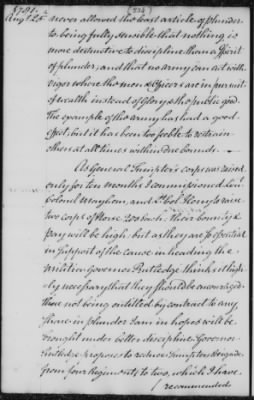 1781. (524)
Augt. 25th never allowed the least article of plunder
to being fully sensible that nothing is
more destructive to discipline than a Spirit
of plunder, and that no army can act with
vigor where the men & Officers are in pursuit
of wealth instead of Glory & the public good.
The example of this army has had a good
effect, but it has been too feeble to restrain
others at all times within due bounds.
As General Sumpter's corps was raised
only for ten months I commissioned Lieu.
Colonel Mayham, and Lt. Col. Horry to raise
two corps of Horse 200 each. Their bounty &
pay will be high, but as they are so essential
in support of the cause in heading the
militia Governor Rutledge thinks it high-
ly necessary that they should be encouraged.
These not being entitled by contract to any
share in plunder I am in hopes will be
brought under better discipline. Governor
Rutledge proposes to reduce Sumpters Brigade
from four Regiments to two, which I have
recommended